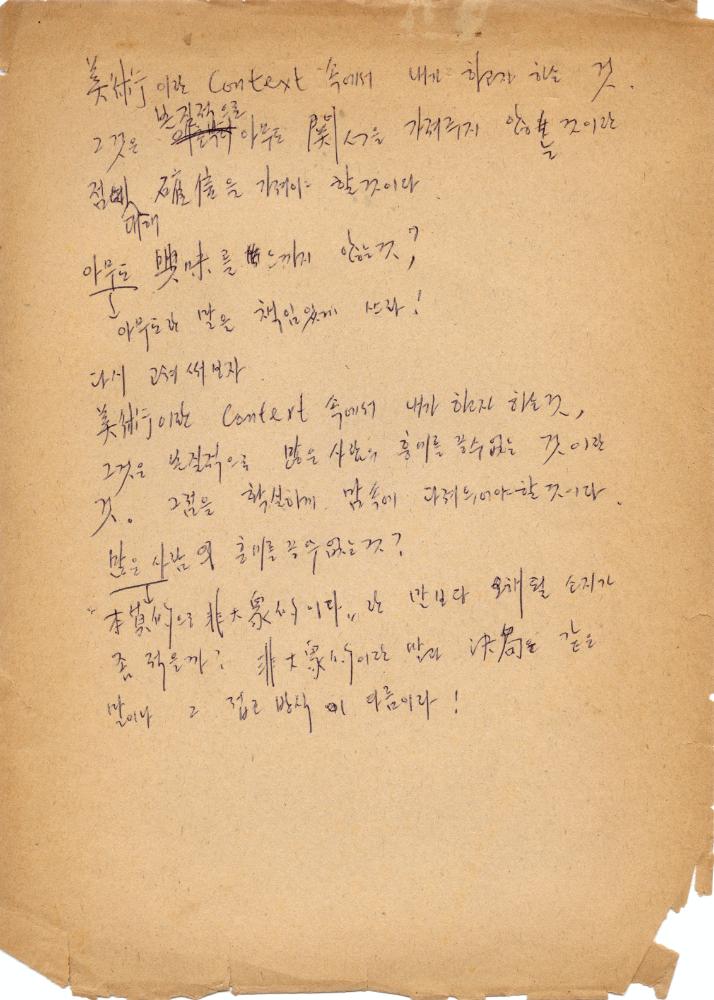 美術이란 Context 속에서 내가 하고자 하는 것.
본질적으로
그것은 아무도 関心을 가져주지 않는 것이란
점에 대해 確信을 가져야 할 것이다
아무도 興味를 느끼지 않는 것?
아무도란 말을 책임있게 쓰라!
다시 고쳐 써보자
美術이란 Context 속에서 내가 하고자 하는 것,
그것은 본질적으로 많은 사람의 흥미를 끌 수 없는 것이란
것。 그점을 확실하게 맘속에 다져두어야 할 것이다.
많은 사람의 흥미를 끌 수 없는 것?
"本質的으로 非大衆的이다"란 말보다 오해될 소지가
좀 적을까? 非大衆的이란 말과 決局은 같은
말이나 그 접근 방식이 다름이라!